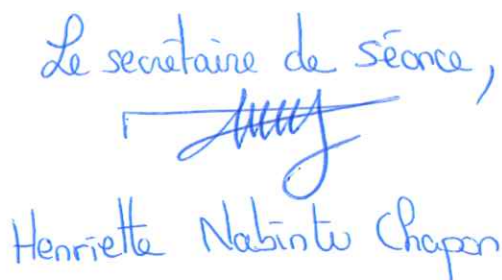 Le secrétaire de séance,
Henriette Nabintu Chapon